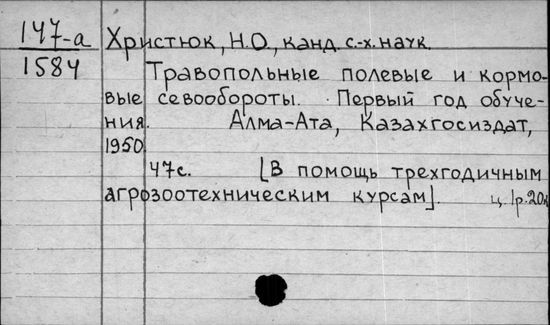 147-а
1584
Христюк, Н.О., канд. с.-х. наук.
Травопольные полевые и кормо-
вые севообороты. Первый год обуче-
ния. Алма-Ата, Казахгосиздат,
1950.
47с. [В помощь трехгодичным
агрозоотехническим курсам]. ц. 1р.20к